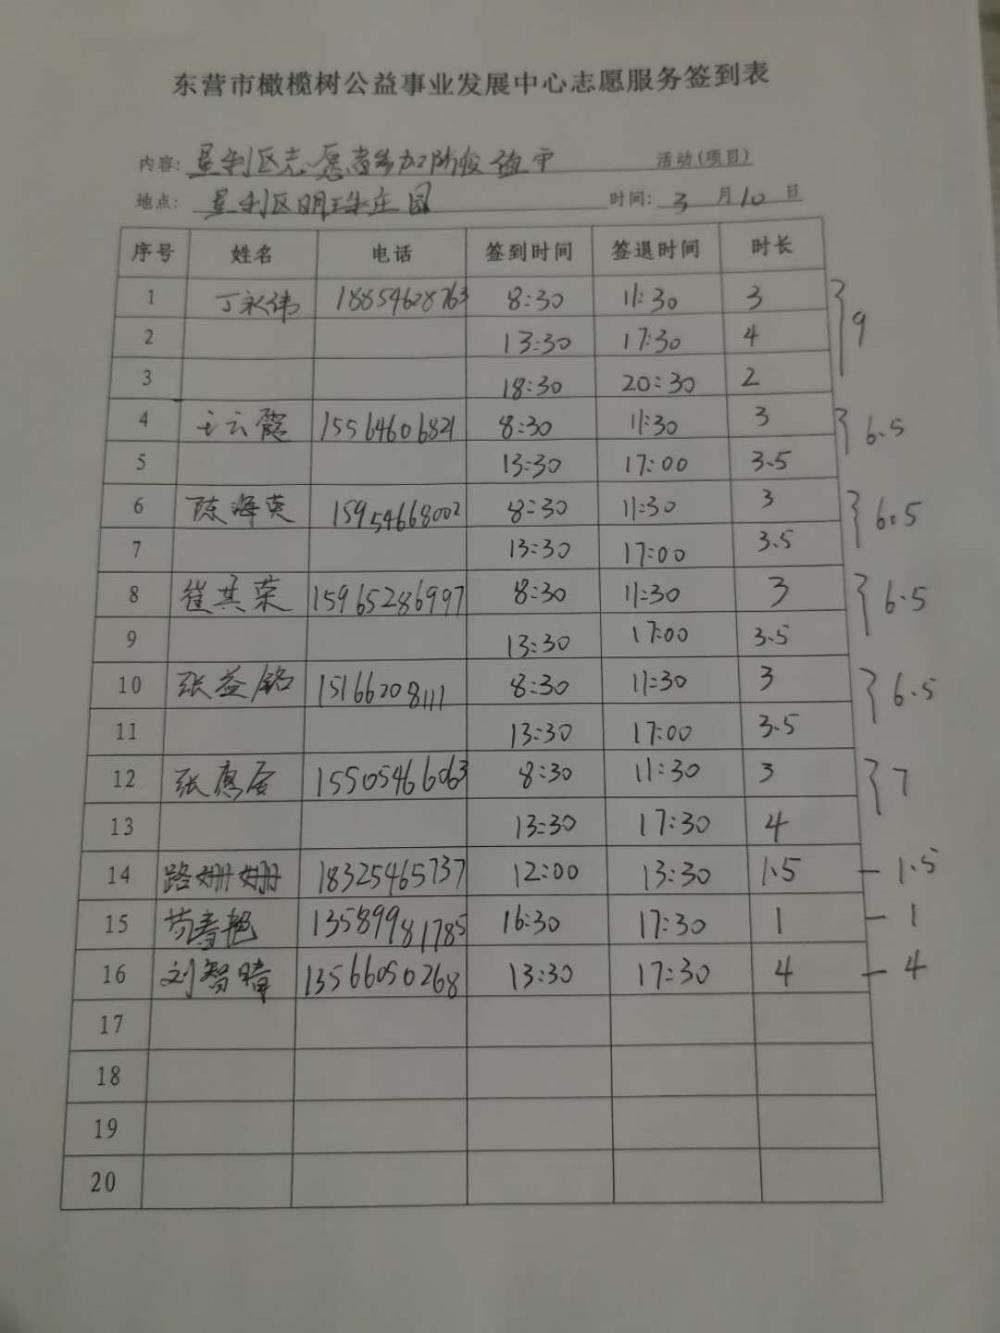 东营市橄榄树公益事业发展中心志愿服务签到表
内容: 垦利区志愿者参加阶段 活动(项目)
地点: 垦利区明珠庄园 时间: 3 月 10 日
序号 姓名 电话 签到时间 签退时间 时长
1 丁永伟 18854628763 8:30 11:30 3
2 13:30 17:30 4 9
3 18:30 20:30 2
4 王云霞 15564606821 8:30 11:30 3 6.5
5 13:30 17:00 3.5
6 陈海英 15954668002 8:30 11:30 3 6.5
7 13:30 17:00 3.5
8 崔其荣 15965286997 8:30 11:30 3 6.5
9 13:30 17:00 3.5
10 张益铭 15166208111 8:30 11:30 3 6.5
11 13:30 17:00 3.5
12 张 15505466063 8:30 11:30 3 7
13 13:30 17:30 4
14 路姗姗 18325465737 12:00 13:30 1.5 — 1.5
15 苟春艳 13589981785 16:30 17:30 1 — 1
16 刘智暄 13566050268 13:30 17:30 4 — 4
17
18
19
20